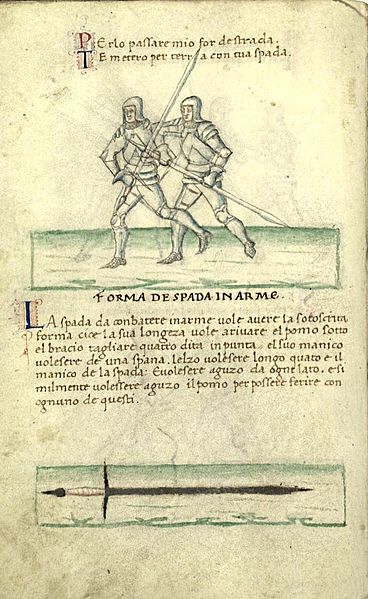 PErlo passare mio for de strada.
TE metero per terra con tua spada.
FORMA DE SPADA IN ARME.
LA spada da conbatere in arme vole avere la sotoscrita
forma cice la sua longeza vole arivare el pomo sotto
el bracio tagliare quatro dita in punta. el suo manico
volesere de una spana. Lelzo volesere longo quato e il
manico de la spada: E volesere aguzo da ogne lato. e si
milmente volessere aguzo il pomo per possere ferire con
ognuno de questi.